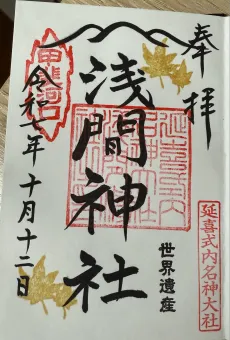 奉拝
延喜式内名神大社
浅間神社
世界遺産
令和七年十月十二日